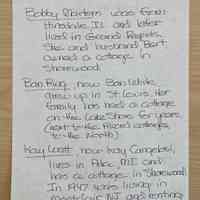 Bobby Masters was from
Hinsdale Il and later
lived in Grand Rapids.
She and husband Bart
owned a cottage in
Shorewood.
Ring, now White
grew up in St Louis. Her
family has had a cottage
on the Lake Shore for years
(next to the cottages,
to the North)
Kay Watt, now Kay Campbell,
lives in Ada, MI and
has a cottage in Shorewood.
In 1947 was living in
NJ and renting